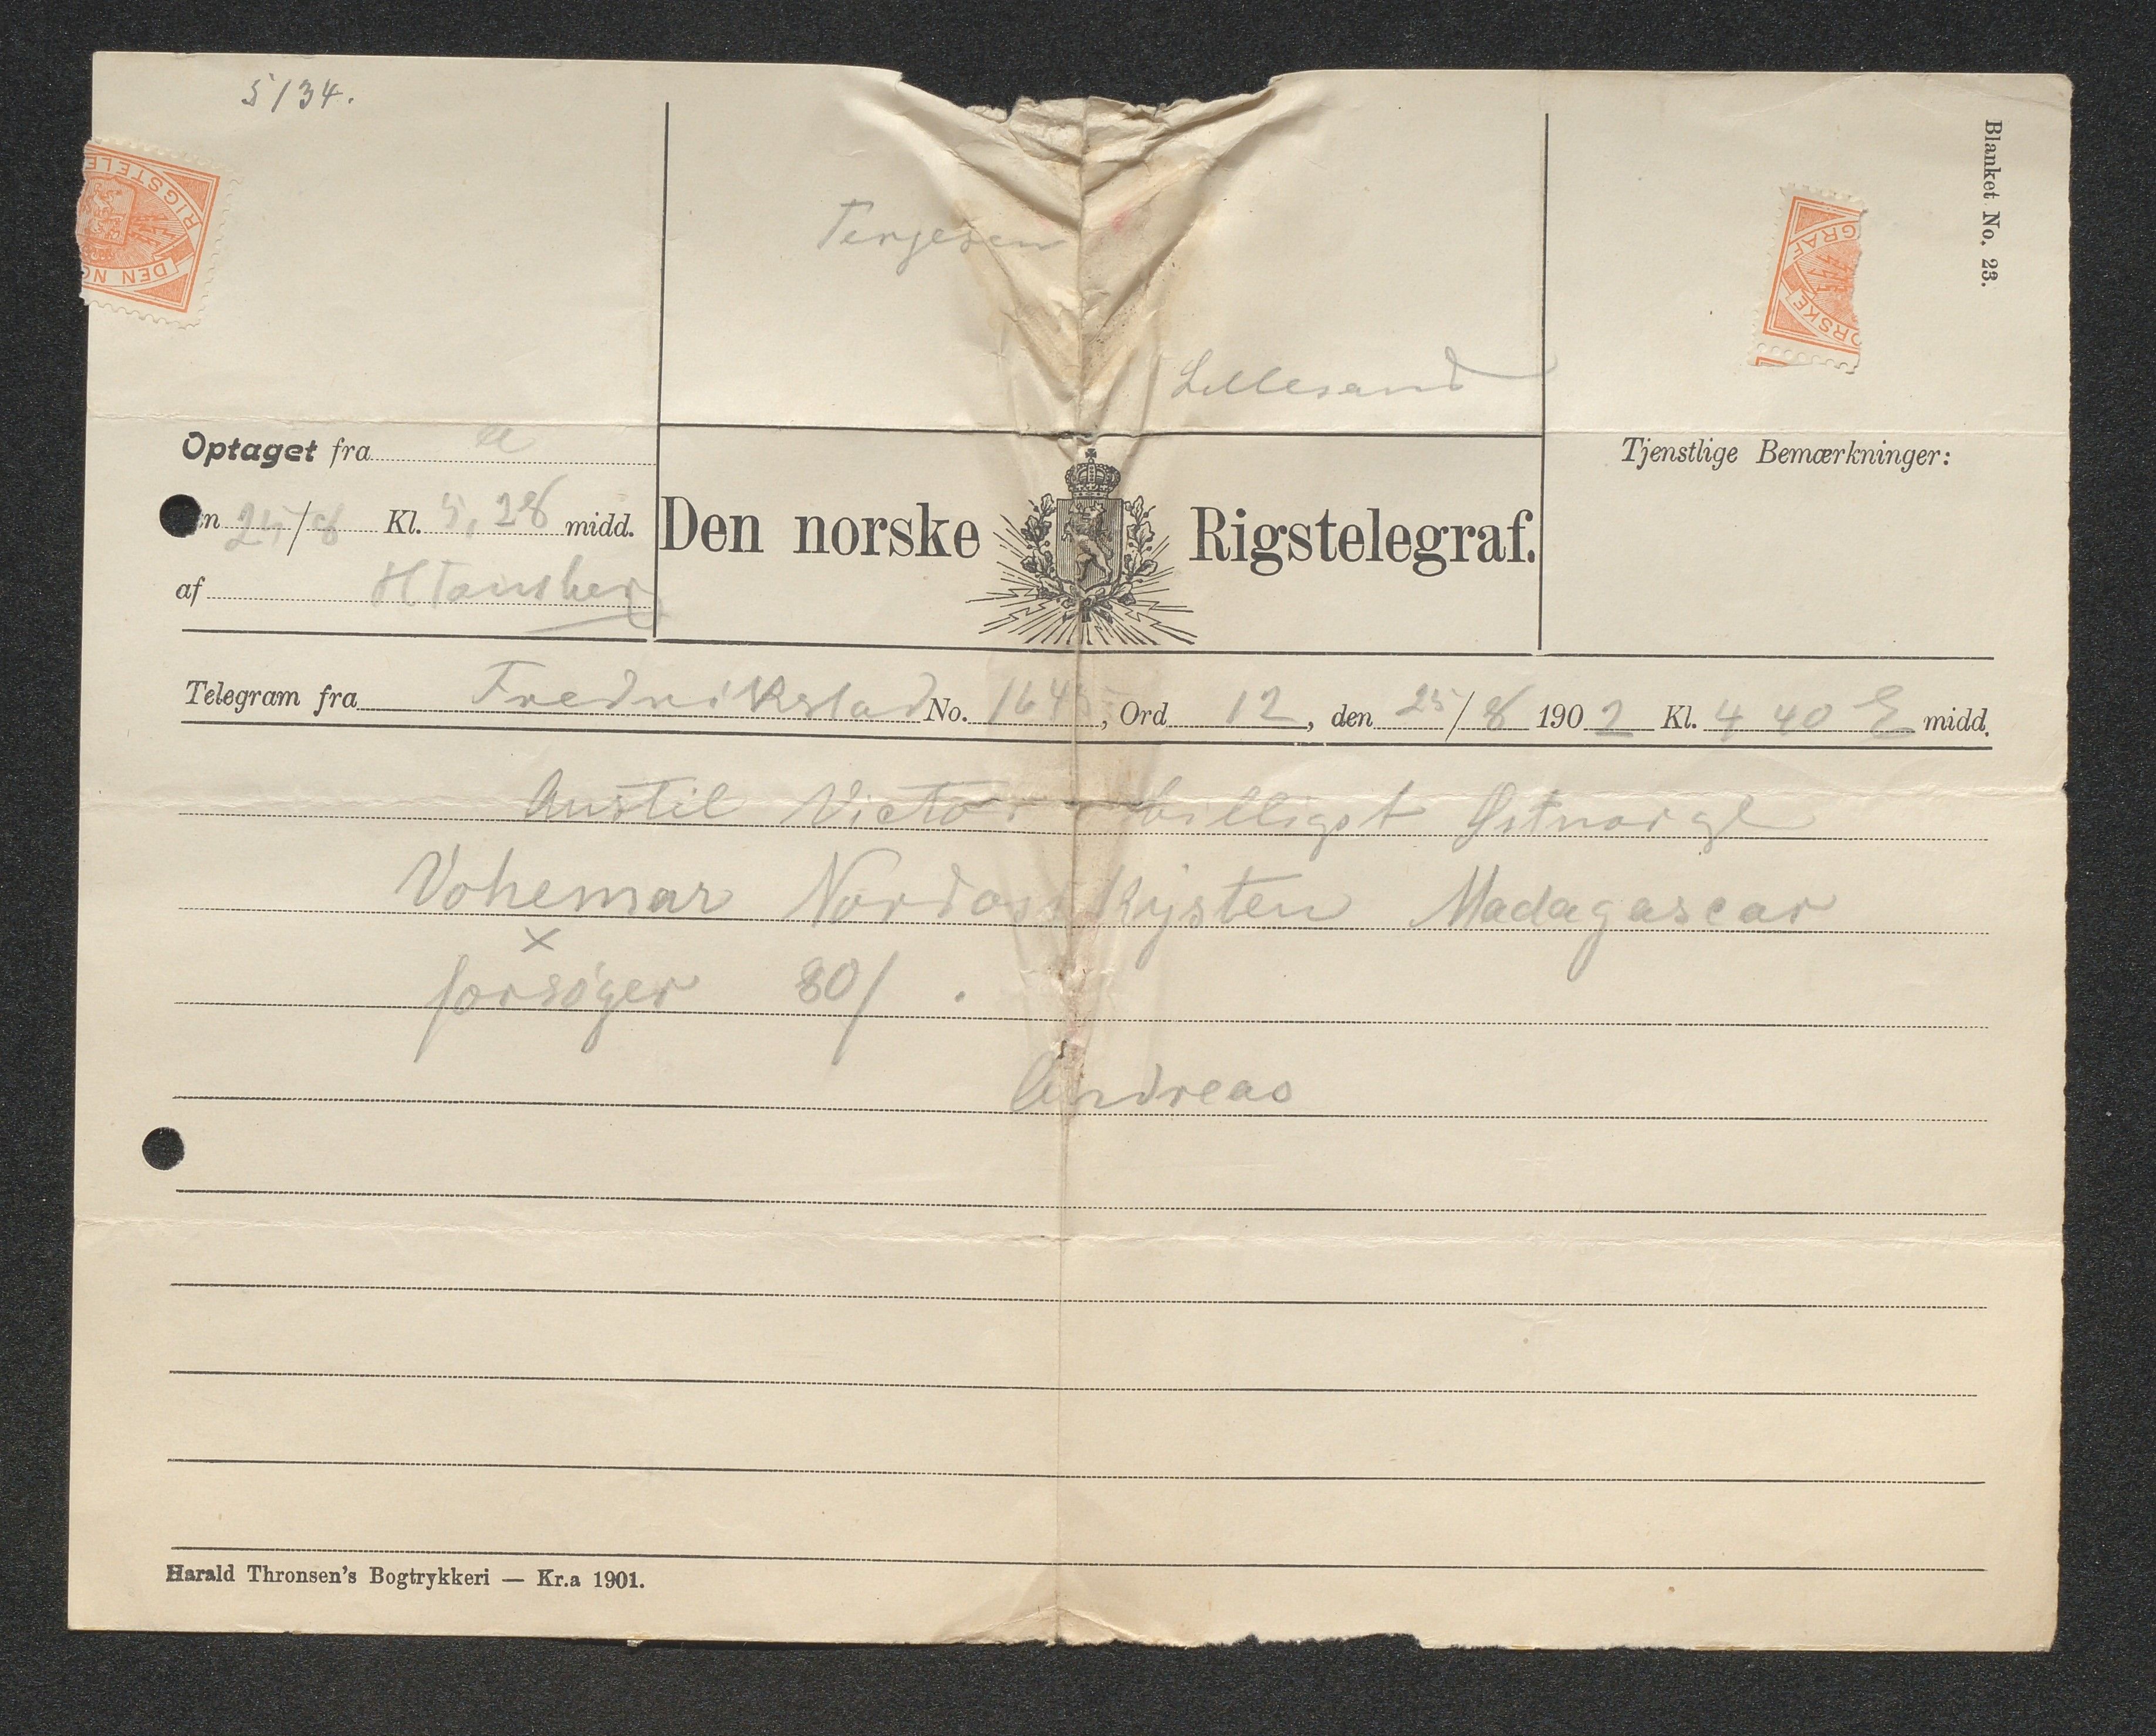 5/34.
Blanket No. 23.
RIGSTELE
DEN NO
GRAF
ORSKE
Terjesen
Lillesand
Optaget fra a
Tjenstlige Bemærkninger:
n 25/8 Kl. 5,28 midd.
Den norske Rigstelegraf.
af
Telegram fra Fredrikstad No. 1645, Ord 12, den 25/8 1902 Kl. 4 40 E midd.
Anstil Victor billigst Østnorge
Vohemar Nordostkysten Madagascar
x
forsøger 80/.
Andreas
Harald Thronsen's Bogtrykkeri — Kr.a 1901.